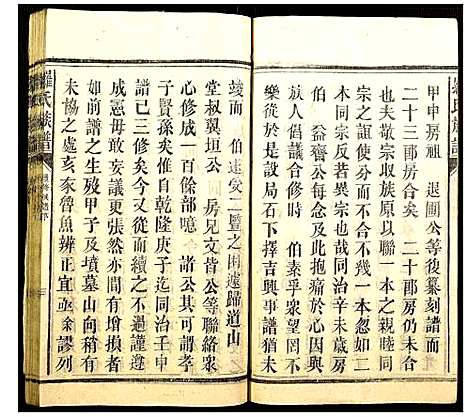 甲申房祖 退圃公等後纂刻譜而
二十三郡房合矣 二十郡房仍不合
也夫敬宗收族原以聯一本然忽如二
宗之誼使分而不合不幾一本忽如二
本同宗反若異宗也哉同治辛未歲房
伯 益齋公每念及此抱痛於心因與
族人倡議合修 伯素乎眾望罔不
樂從於是設局石下擇吉興事譜猶未
竣而 伯遽受二豎之困遽歸道山
堂叔翼垣公 房兄文皆公等聯絡衆
心修成一百餘部噫 諸公其可謂孝
子賢孫矣惟自乾隆庚子迄同治壬申
譜已三修矣今試從而續之不過謹遵
成憲何敢妄議更張然亦間有增損者
如生歿甲子及墳墓山向稍有
未協之處亥豕魯魚辨正宜急謬列
羅氏族譜